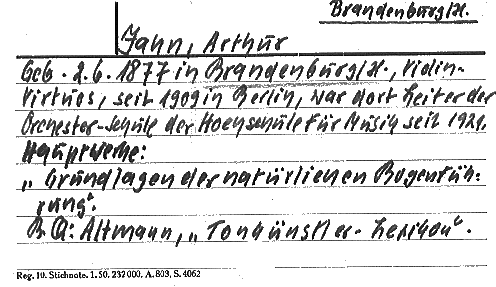 Brandenburg/H.
Jahn, Arthur
Geb. 2.6.1877 in Brandenburg/H., Violin-
virtuos, seit 1909 in Berlin, war dort Leiter der
Orchester-schule der Hochschule für Musik seit 1921.
Hauptwerke:
„Grundlagen der natürlichen Bogenfüh-
rung".
B.Q: Altmann, „Tonkünstler-Lexikon".
Reg. 10. Stichnote. 1. 50. 232000. A. 803. S. 4062